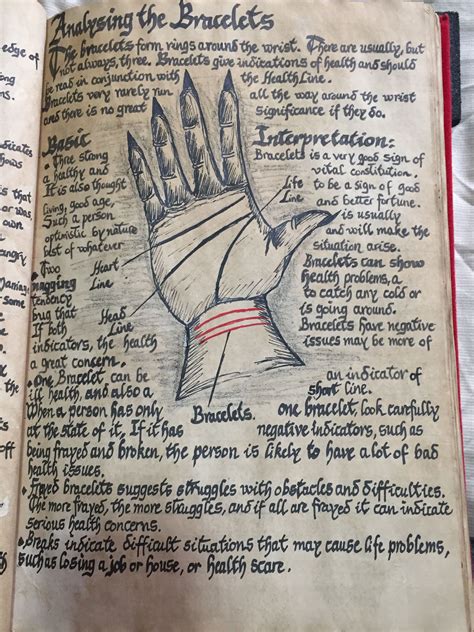 Analysing the Bracelets
The bracelets form rings around the wrist. There are usually, but
not always, three. Bracelets give indications of health and should
be read in conjunction with the Health Line.
Bracelets very rarely run all the way around the wrist
and there is no great significance if they do.
Basic Interpretation:
• Three strong Bracelets is a very good sign of
a healthy and vital constitution.
It is also thought to be a sign of good
living, good age, and better fortune.
Such a person is usually
optimistic by nature and will make the
best of whatever situation arise.
Two Bracelets can show
nagging health problems, a
tendency to catch any cold or
bug that is going around.
If both Bracelets have negative
indicators, the health issues may be more of
a great concern.
• One Bracelet can be an indicator of
ill health, and also a short line.
When a person has only one bracelet, look carefully
at the state of it. If it has negative indicators, such as
being frayed and broken, the person is likely to have a lot of bad
health issues.
• Frayed bracelets suggests struggles with obstacles and difficulties.
The more frayed, the more struggles, and if all are frayed it can indicate
serious health concerns.
• Breaks indicate difficult situations that may cause life problems,
such as losing a job or house, or health scare.
Life
Line
Heart
Line
Head
Line
Bracelets.
edge of
that is
or was,
own
Some